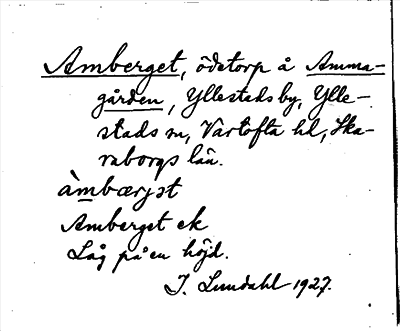 Amberget, ödetorp å Amma-
gården, Yllestads by, Ylle-
stads sn, Vartofta hd, Ska-
raborgs län.
àmbærjət
Amberget ek
Låg på en höjd.
I. Lundahl 1927.